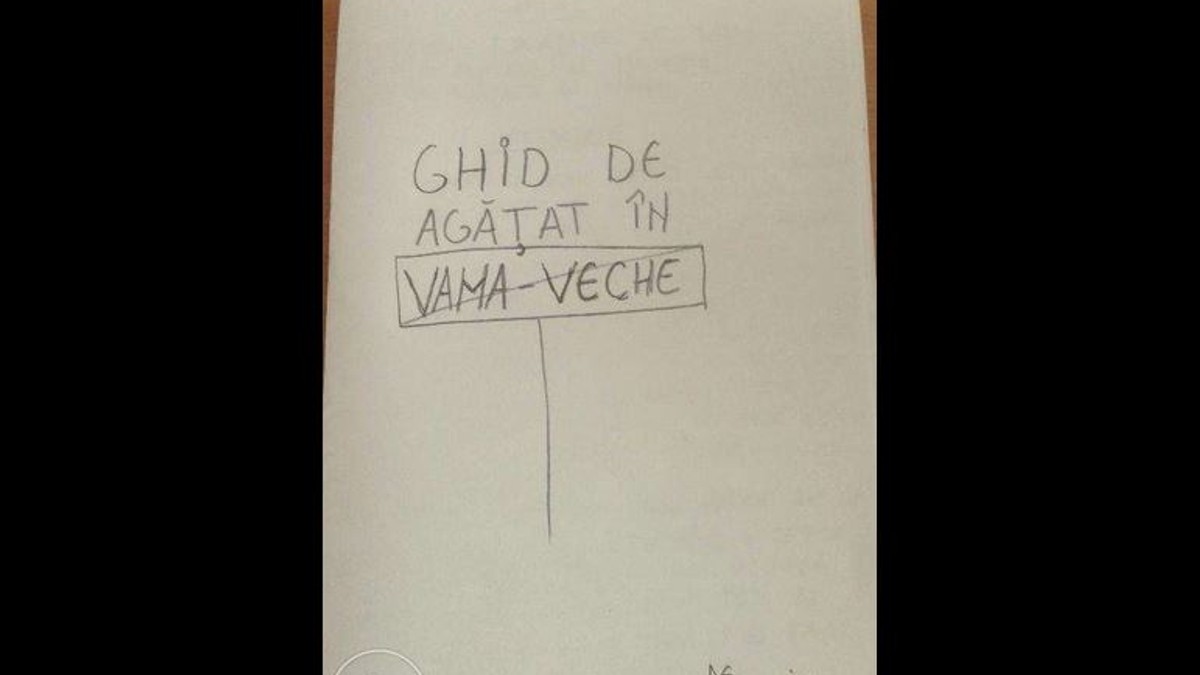 GHiD DE
AGĂȚAT ÎN
VAMA-VECHE